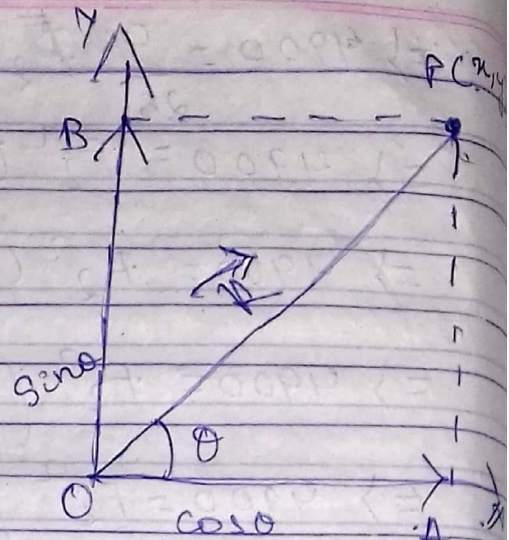 Y
P(x,y
B
R
Sinθ
θ
O
cosθ
A
X